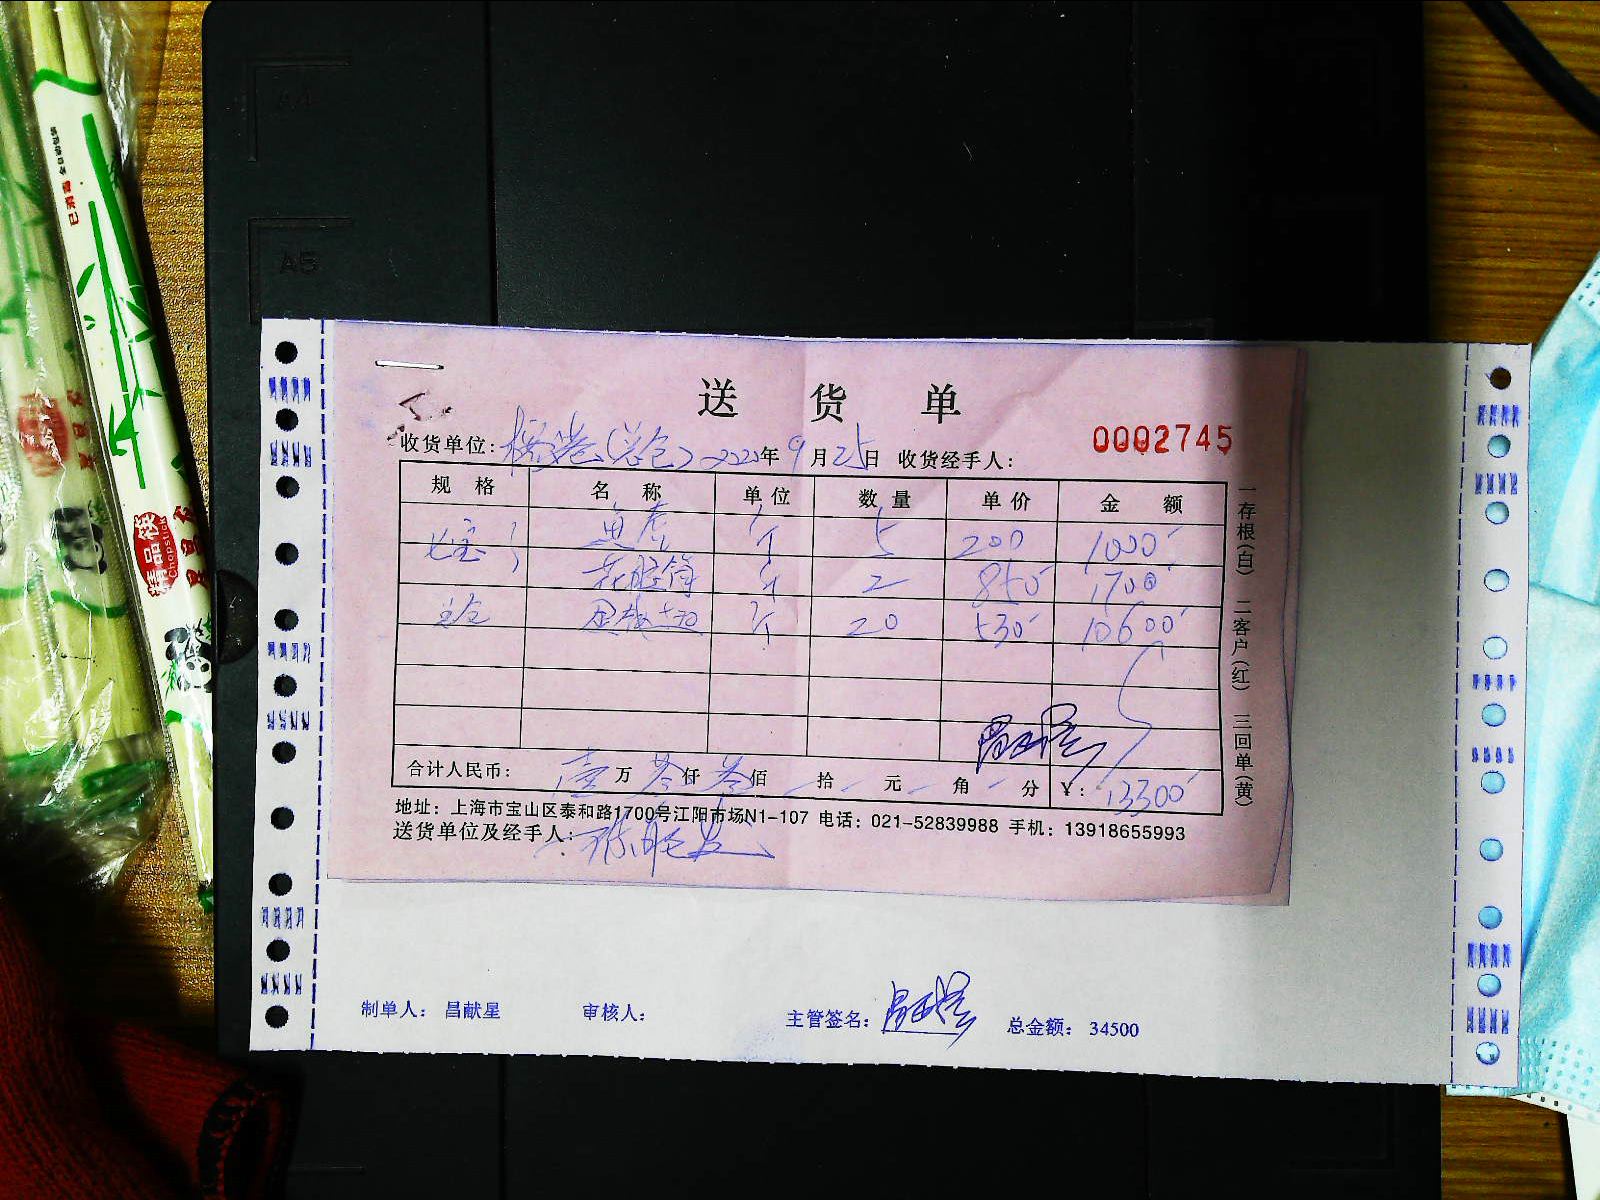 A4
A5
已消毒
精品筷
Chopstick
送 货 单
0002745
收货单位: (总仓) 2020年 9 月 25 日 收货经手人:
规 格 名 称 单 位 数 量 单 价 金 额
七宝 个 5 200 1000
花胶筒 个 2 850 1700
总仓 个 20 530 10600
合计人民币: 壹 万 叁 仟 叁 佰 拾 元 角 分 ¥: 13300
地址: 上海市宝山区泰和路1700号江阳市场N1-107 电话: 021-52839988 手机: 13918655993
送货单位及经手人:
一存根(白) 二客户(红) 三回单(黄)
制单人: 昌献星 审核人: 主管签名: 总金额: 34500